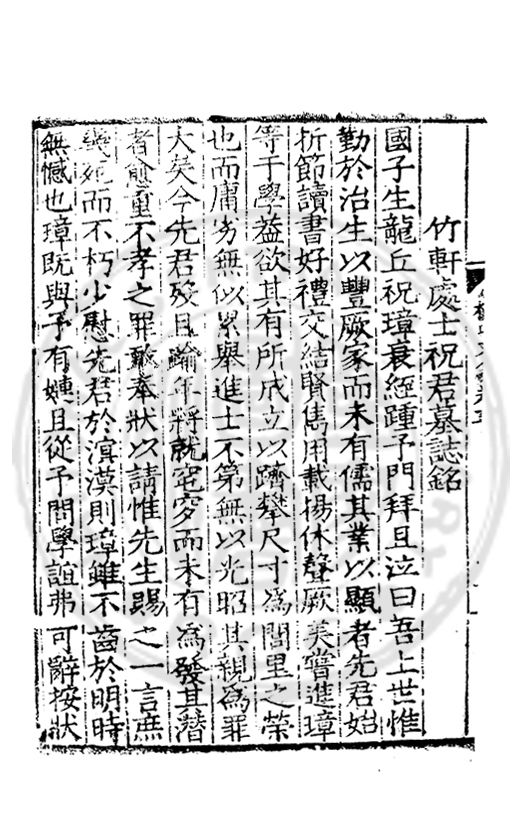 竹軒處士祝君墓誌銘
國子生龍丘祝璋衰絰踵予門拜且泣曰吾上世惟
勤於治生以豐厥家而未有儒其業以顯者先君始
折節讀書好禮交結賢雋用載揚休聲厥美嘗進璋
等于學益欲其有所成立以躋攀尺寸為閭里之榮
也而庸劣無似累舉進士不第無以光昭其親為罪
大矣今先君歿且踰年將就窀穸而未有為發其潛
者愈重不孝之罪敢奉狀以請惟先生賜之一言庶
幾死而不朽少慰先君於溟漠則璋雖不齒於明時
無憾也璋既與予有婣且從予問學誼弗可辭按狀